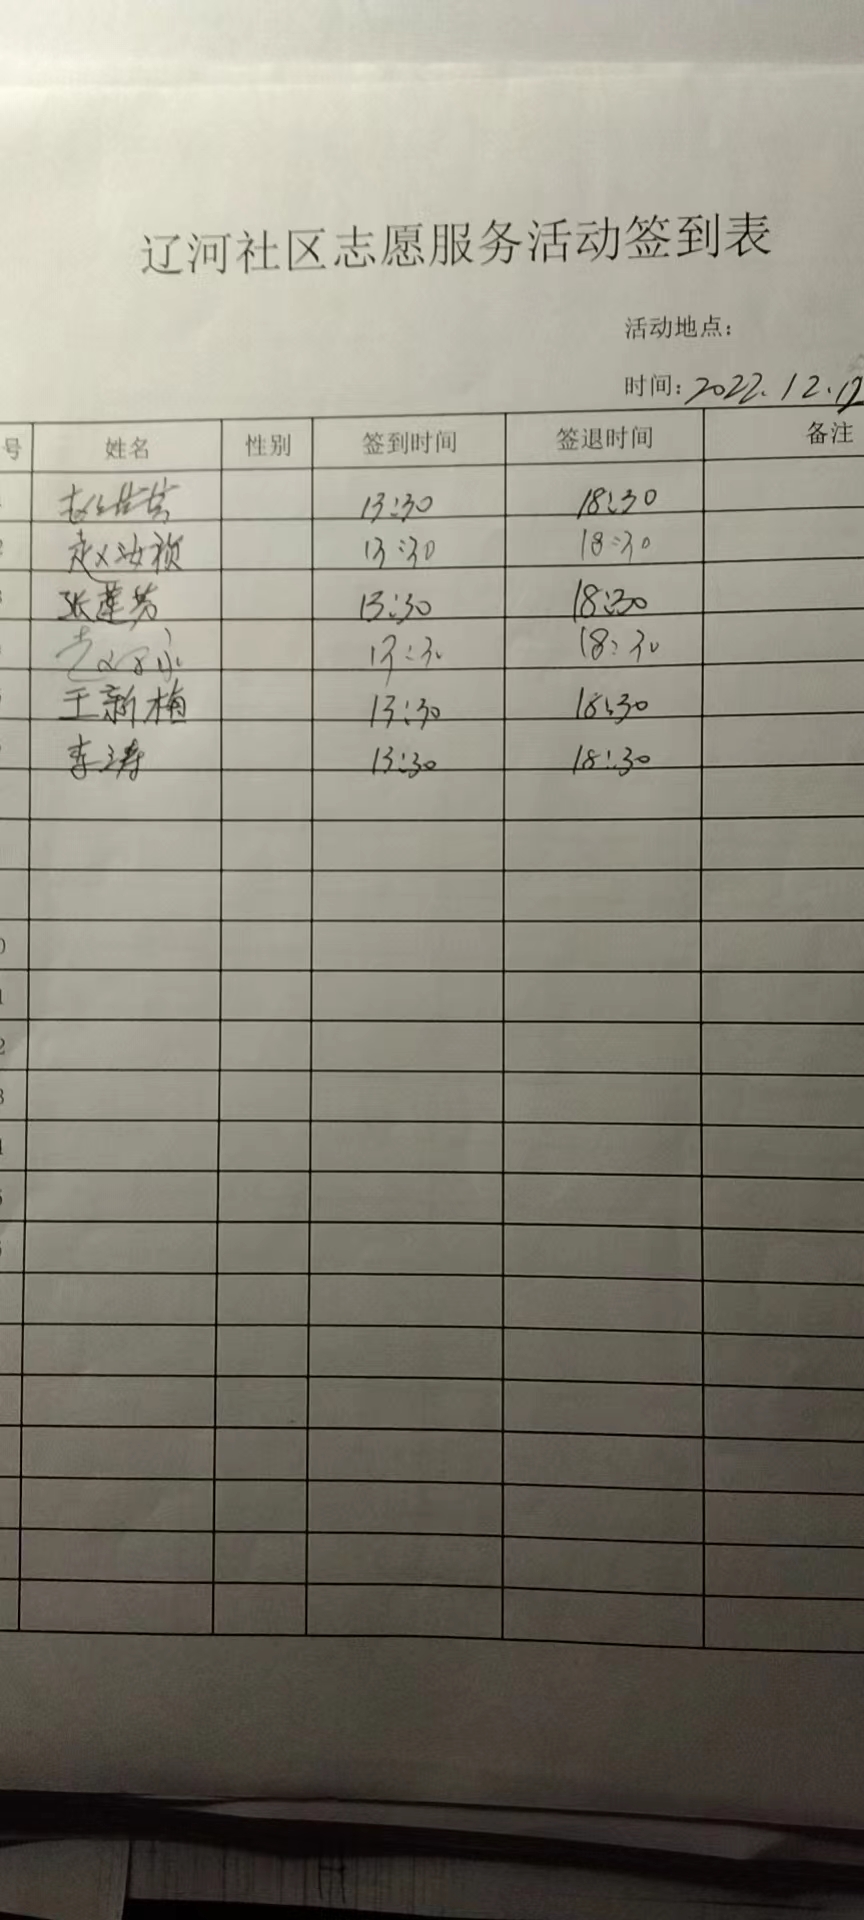 辽河社区志愿服务活动签到表
活动地点:
时间: 2022.12.12
号 姓名 性别 签到时间 签退时间 备注
13:30 18:30
赵汝祯 13:30 18:30
张莲芳 13:30 18:30
13:30 18:30
王新梅 13:30 18:30
李涛 13:30 18:30
0
1
2
3
4
5
6